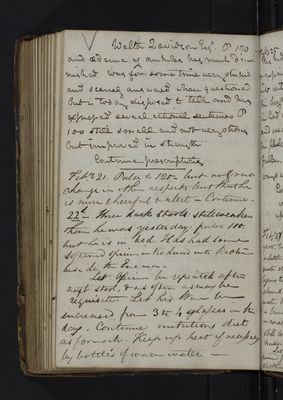 Walter Davidson Esqr. P 170
and œdema of ankles has much dimi
nished. Was for some time very stupid
and scarcely answered when questioned
but is to day disposed to talk and has
expressed several rational sentences P
100 still small and not very strong
but improved in strength
Continue prescriptions
Feby 21. Pulse is 120 but no
change in other respects but that he
is more cheerful & alert – Continue.
22d Three dark stools still weaker
than he was yesterday. pulse 100.
but he is in bed. Has had some
opium introduced into
beside the Enema.
Let Opium be repeated after
next stool, & as often as may be
requisite. Let his Wine be
increased from 3 to 4 glasses in the
day. Continue nutritious diet
as formerly. Keep up heat if necessary
by bottles of warm water. –